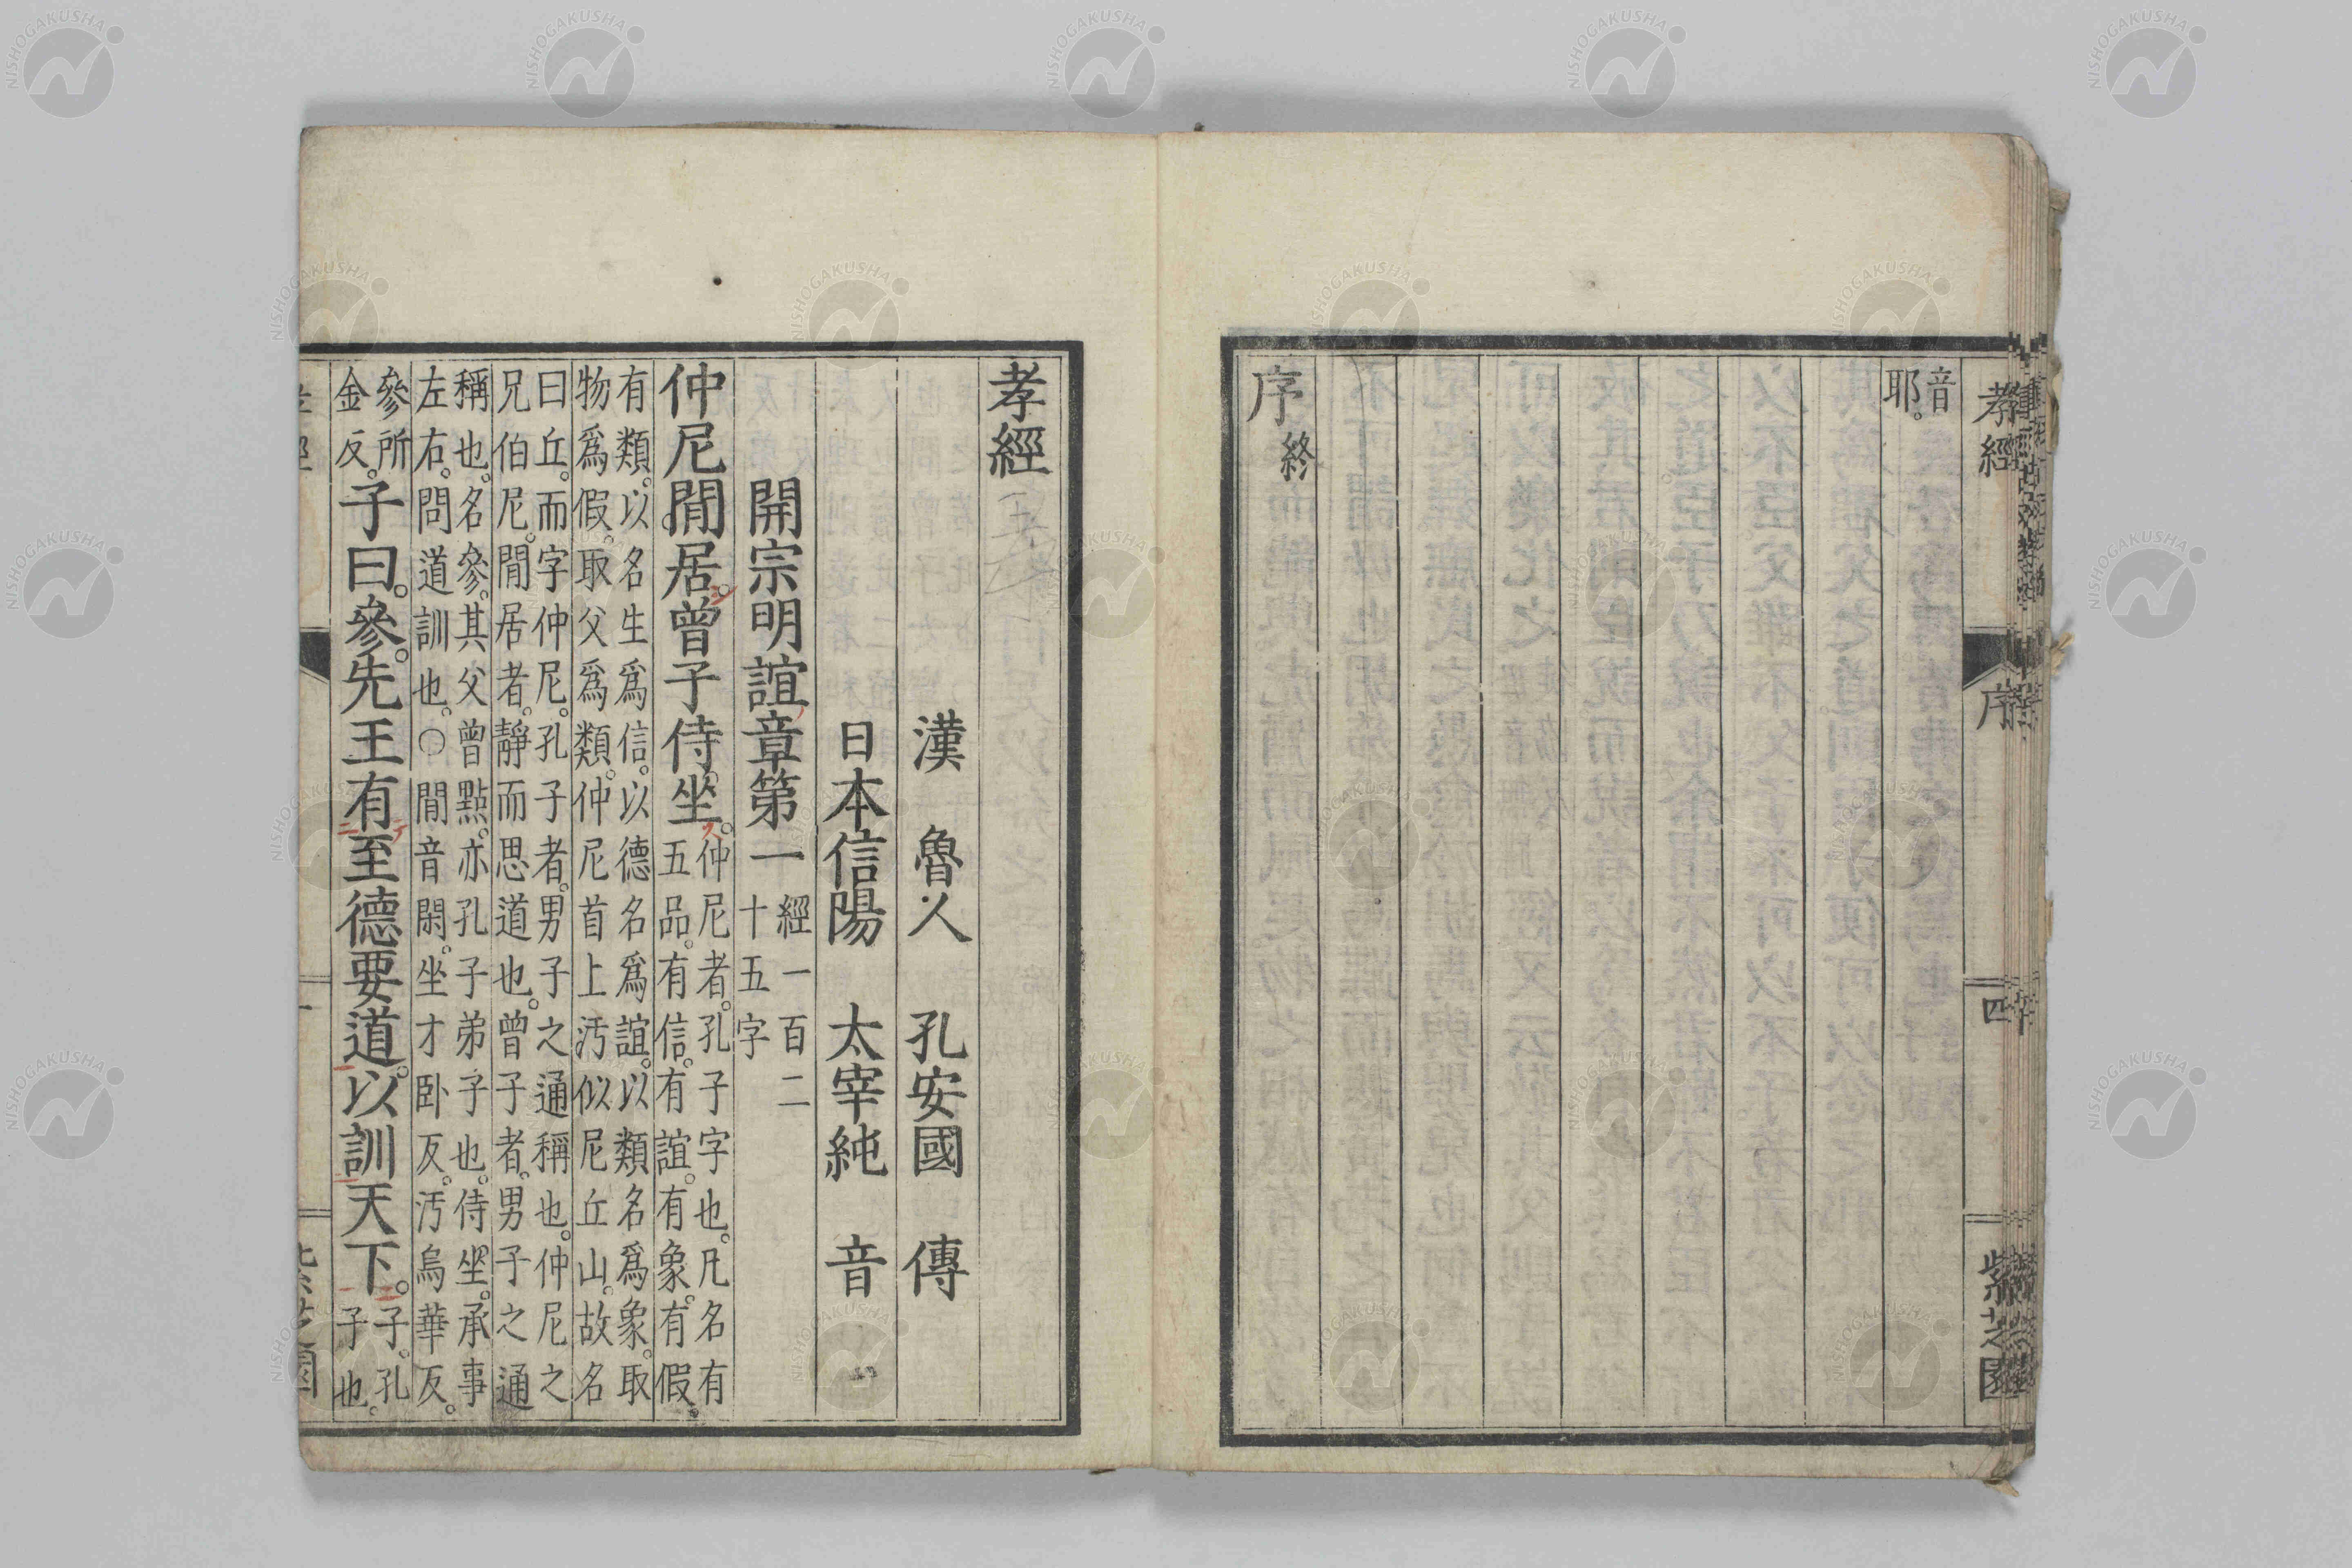 孝經 序 四 紫芝園
音
耶。
序終
孝經
漢 魯人 孔安國 傳
日本信陽 太宰純 音
開宗明誼章第一 經一百二
十五字
仲尼閒居。曾子侍坐。仲尼者。孔子字也。凡名有
五品。有信。有誼。有象。有假。
有類。以名生爲信。以德名爲誼。以類名爲象。取
物爲假。取父爲類。仲尼首上汚似尼丘山。故名
曰丘。而字仲尼。孔子者。男子之通稱也。仲尼之
兄伯尼。閒居者。靜而思道也。曾子者。男子之通
稱也。名參。其父曾點。亦孔子弟子也。侍坐。承事
左右。問道訓也。○閒音閑。坐才卧反。汚烏華反。
參所
金反。子曰。參。先王有至德要道。以訓天下。子。孔
子也。
NISHOGAKUSHA